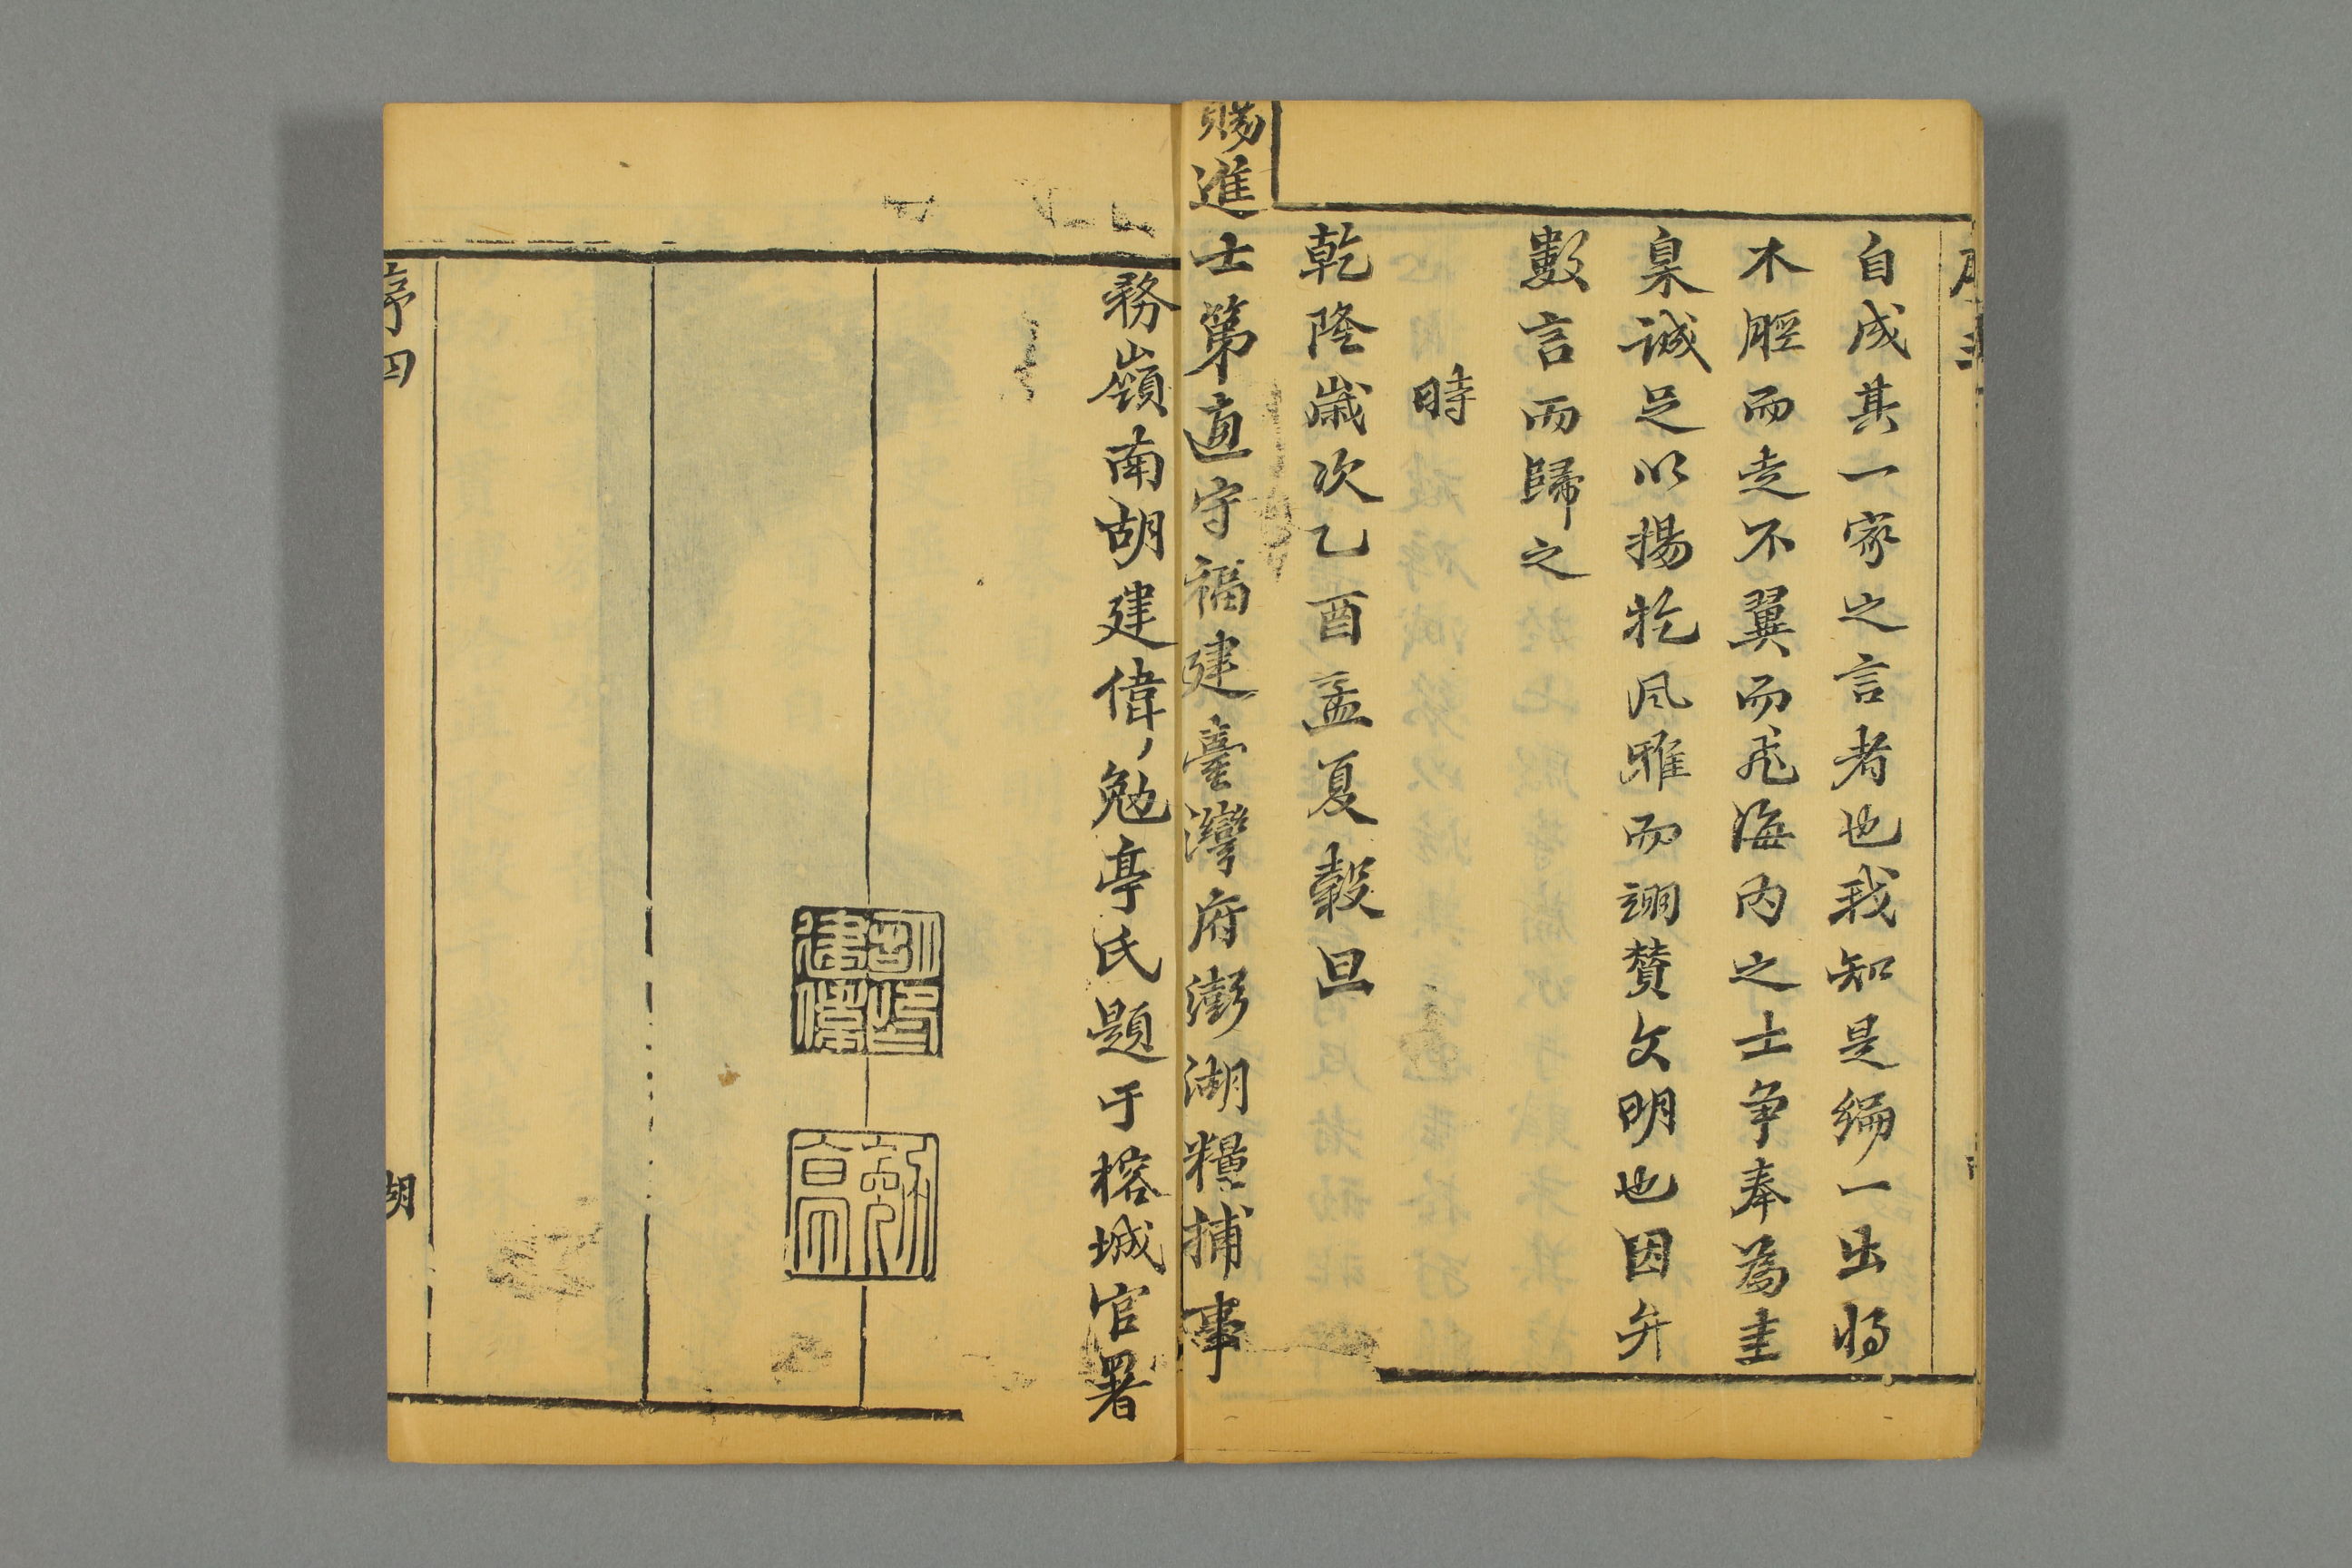 自成其一家之言者也我知是编一出将
不脛而走不翼而飛海内之士争奉為圭
臬誠足以揚扢風雅而詡賛文明也因弁
數言而歸之
時
乾隆歲次乙酉孟夏穀旦
賜進士第直守福建臺灣府澎湖糧捕事
務嶺南胡建偉勉亭氏題于榕城官署
胡印建偉
勉亭
序四
胡